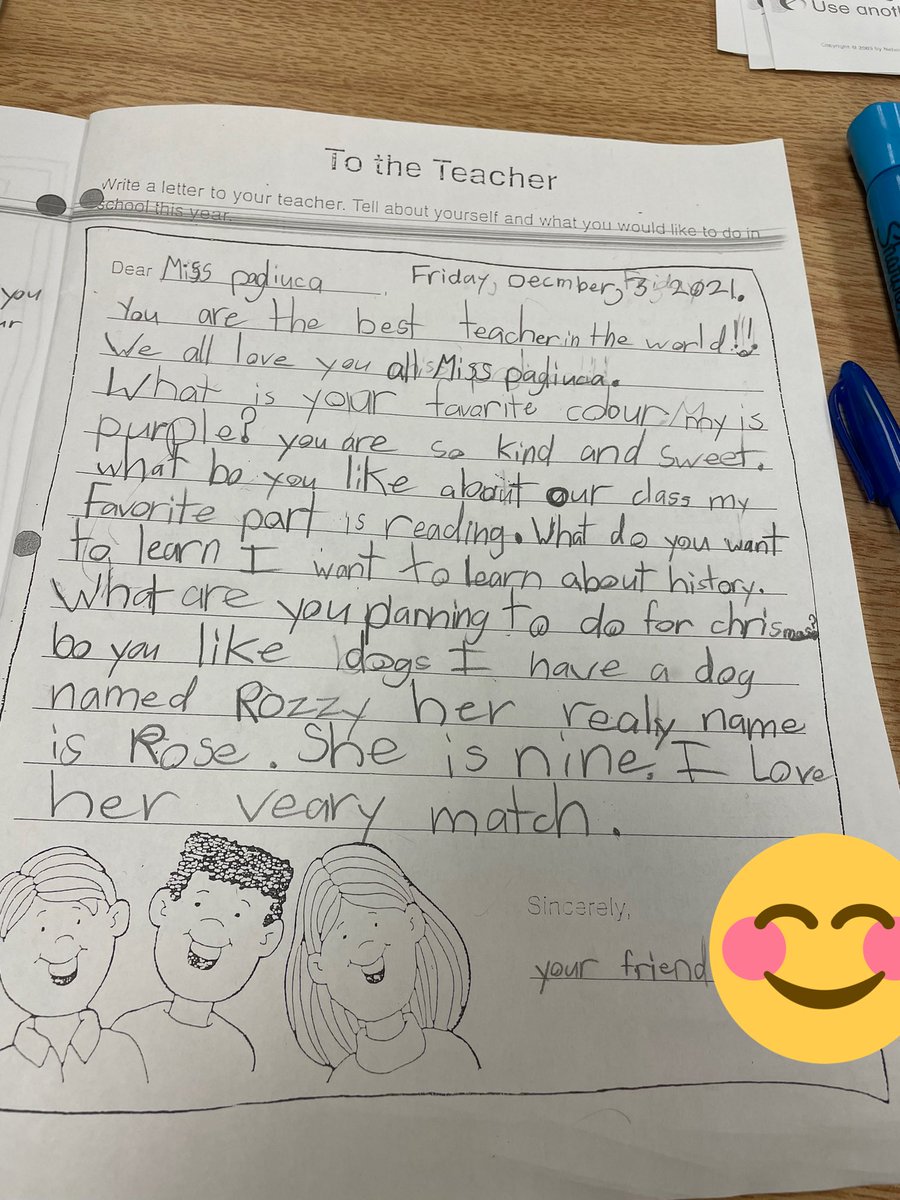 Use anot
Copyright © 2003 by
To the Teacher
Write a letter to your teacher. Tell about yourself and what you would like to do in
school this year.
you
ur
Dear Miss pagliuca Friday, Decmber, 3 2021.
You are the best teacher in the world!!!
We all love you all Miss pagliuca.
What is your favarite colour My is
purple? you are so kind and sweet.
what bo you like about our class my
favorite part is reading. What do you want
to learn I want to learn about history.
What are you planning to do for chrismas?
bo you like dogs I have a dog
named Rozzy her realy name
is Rose. She is nine. I Love
her veary match.
Sincerely,
your friend